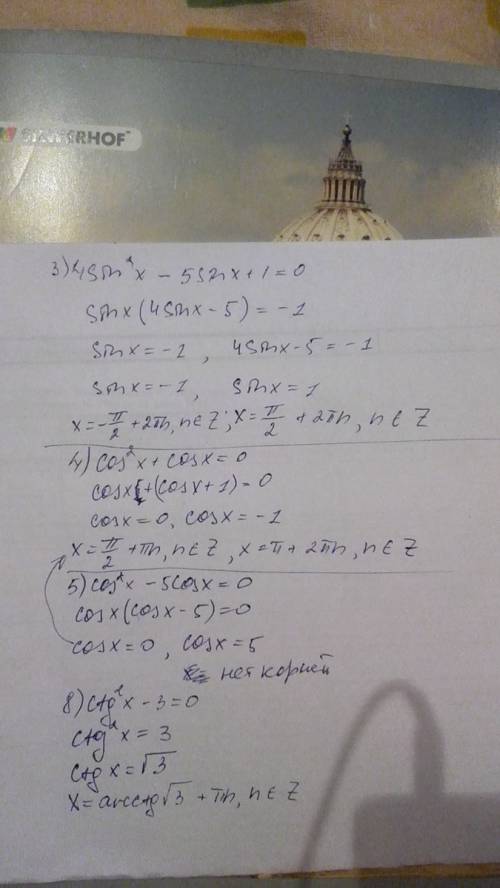 SILVERHOF
3) 4sin²x - 5sinx + 1 = 0
sinx(4sinx - 5) = -1
sinx = -1, 4sinx - 5 = -1
sinx = -1, sinx = 1
x = -π/2 + 2πn, n ∈ Z; x = π/2 + 2πn, n ∈ Z
4) cos²x + cosx = 0
cosx(cosx + 1) = 0
cosx = 0, cosx = -1
x = π/2 + πn, n ∈ Z, x = π + 2πn, n ∈ Z
5) cos²x - 5cosx = 0
cosx(cosx - 5) = 0
cosx = 0, cosx = 5
нет корней
8) ctg²x - 3 = 0
ctg²x = 3
ctgx = √3
x = arcctg√3 + πn, n ∈ Z